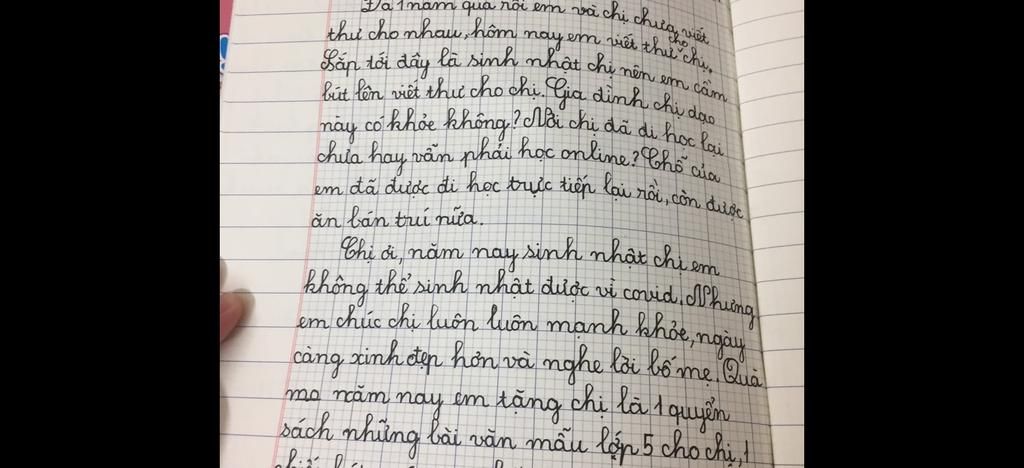 Đã 1 năm qua rồi em và chị chưa viết
thư cho nhau, hôm nay em viết thư cho chị.
Sắp tới đây là sinh nhật chị nên em cầm
bút lên viết thư cho chị. Gia đình chị dạo
này có khỏe không? Nơi chị đã đi học lại
chưa hay vẫn phải học online? Chỗ của
em đã được đi học trực tiếp lại rồi, còn được
ăn bán trú nữa.
Chị ơi, năm nay sinh nhật chị em
không thể sinh nhật được vì covid. Nhưng
em chúc chị luôn luôn mạnh khỏe, ngày
càng xinh đẹp hơn và nghe lời bố mẹ. Quà
mà năm nay em tặng chị là 1 quyển
sách những bài văn mẫu lớp 5 cho chị, 1